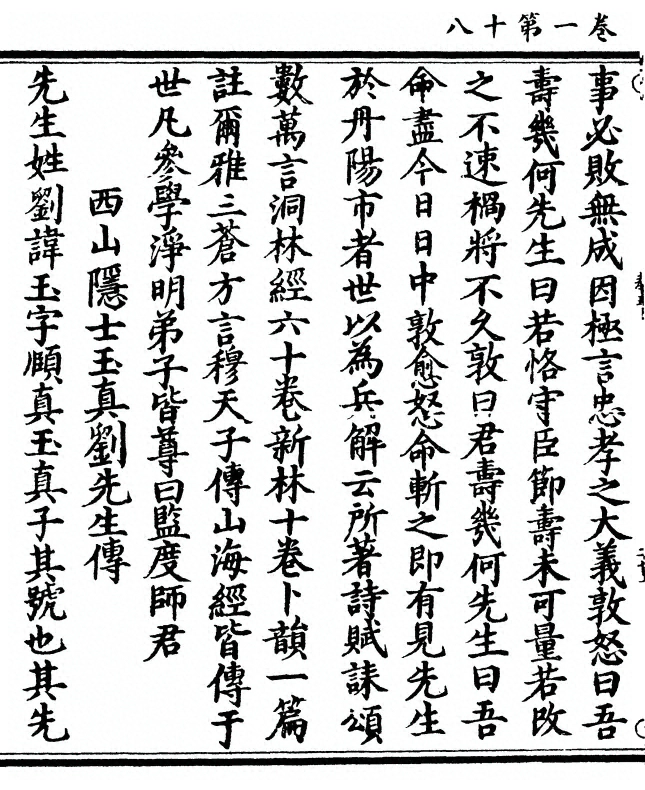 卷一第十八
事必敗無成因極言忠孝之大義敦怒曰吾
壽幾何先生曰若恪守臣節壽未可量若改
之不速禍將不久敦曰君壽幾何先生曰吾
命盡今日日中敦愈怒命斬之即有見先生
於丹陽市者世以為兵解云所著詩賦誄頌
數萬言洞林經六十卷新林十卷卜韻一篇
註爾雅三蒼方言穆天子傳山海經皆傳于
世凡參學淨明弟子皆尊曰監度師君
西山隱士玉真劉先生傳
先生姓劉諱玉字頤真玉真子其號也其先